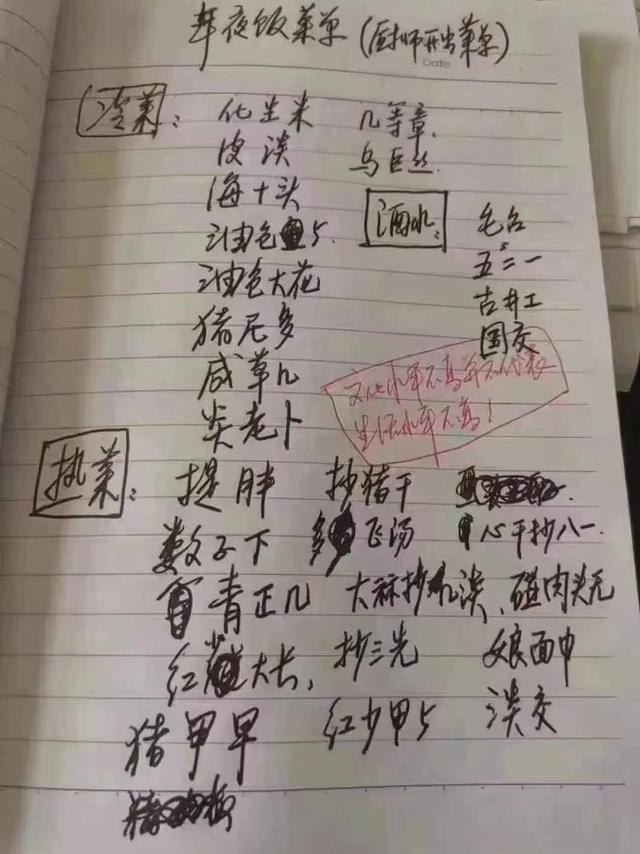 年夜饭菜单(厨师开出菜单)
Date
冷菜: 化生米 几等章.
皮淡 乌巨丝.
海十头
油色5. 酒水: 毛台
油色大花 五二一
猪尼多 古井工
咸草几 国交
炎老卜
文化水平不高并不代表
生活水平不高!
热菜: 提胖 抄猪干
数子下 飞汤 心干抄八一.
青正几 大麻抄几淡、碰肉头元
红大长, 抄三先 娘面巾
猪甲早 红少甲5 淡交